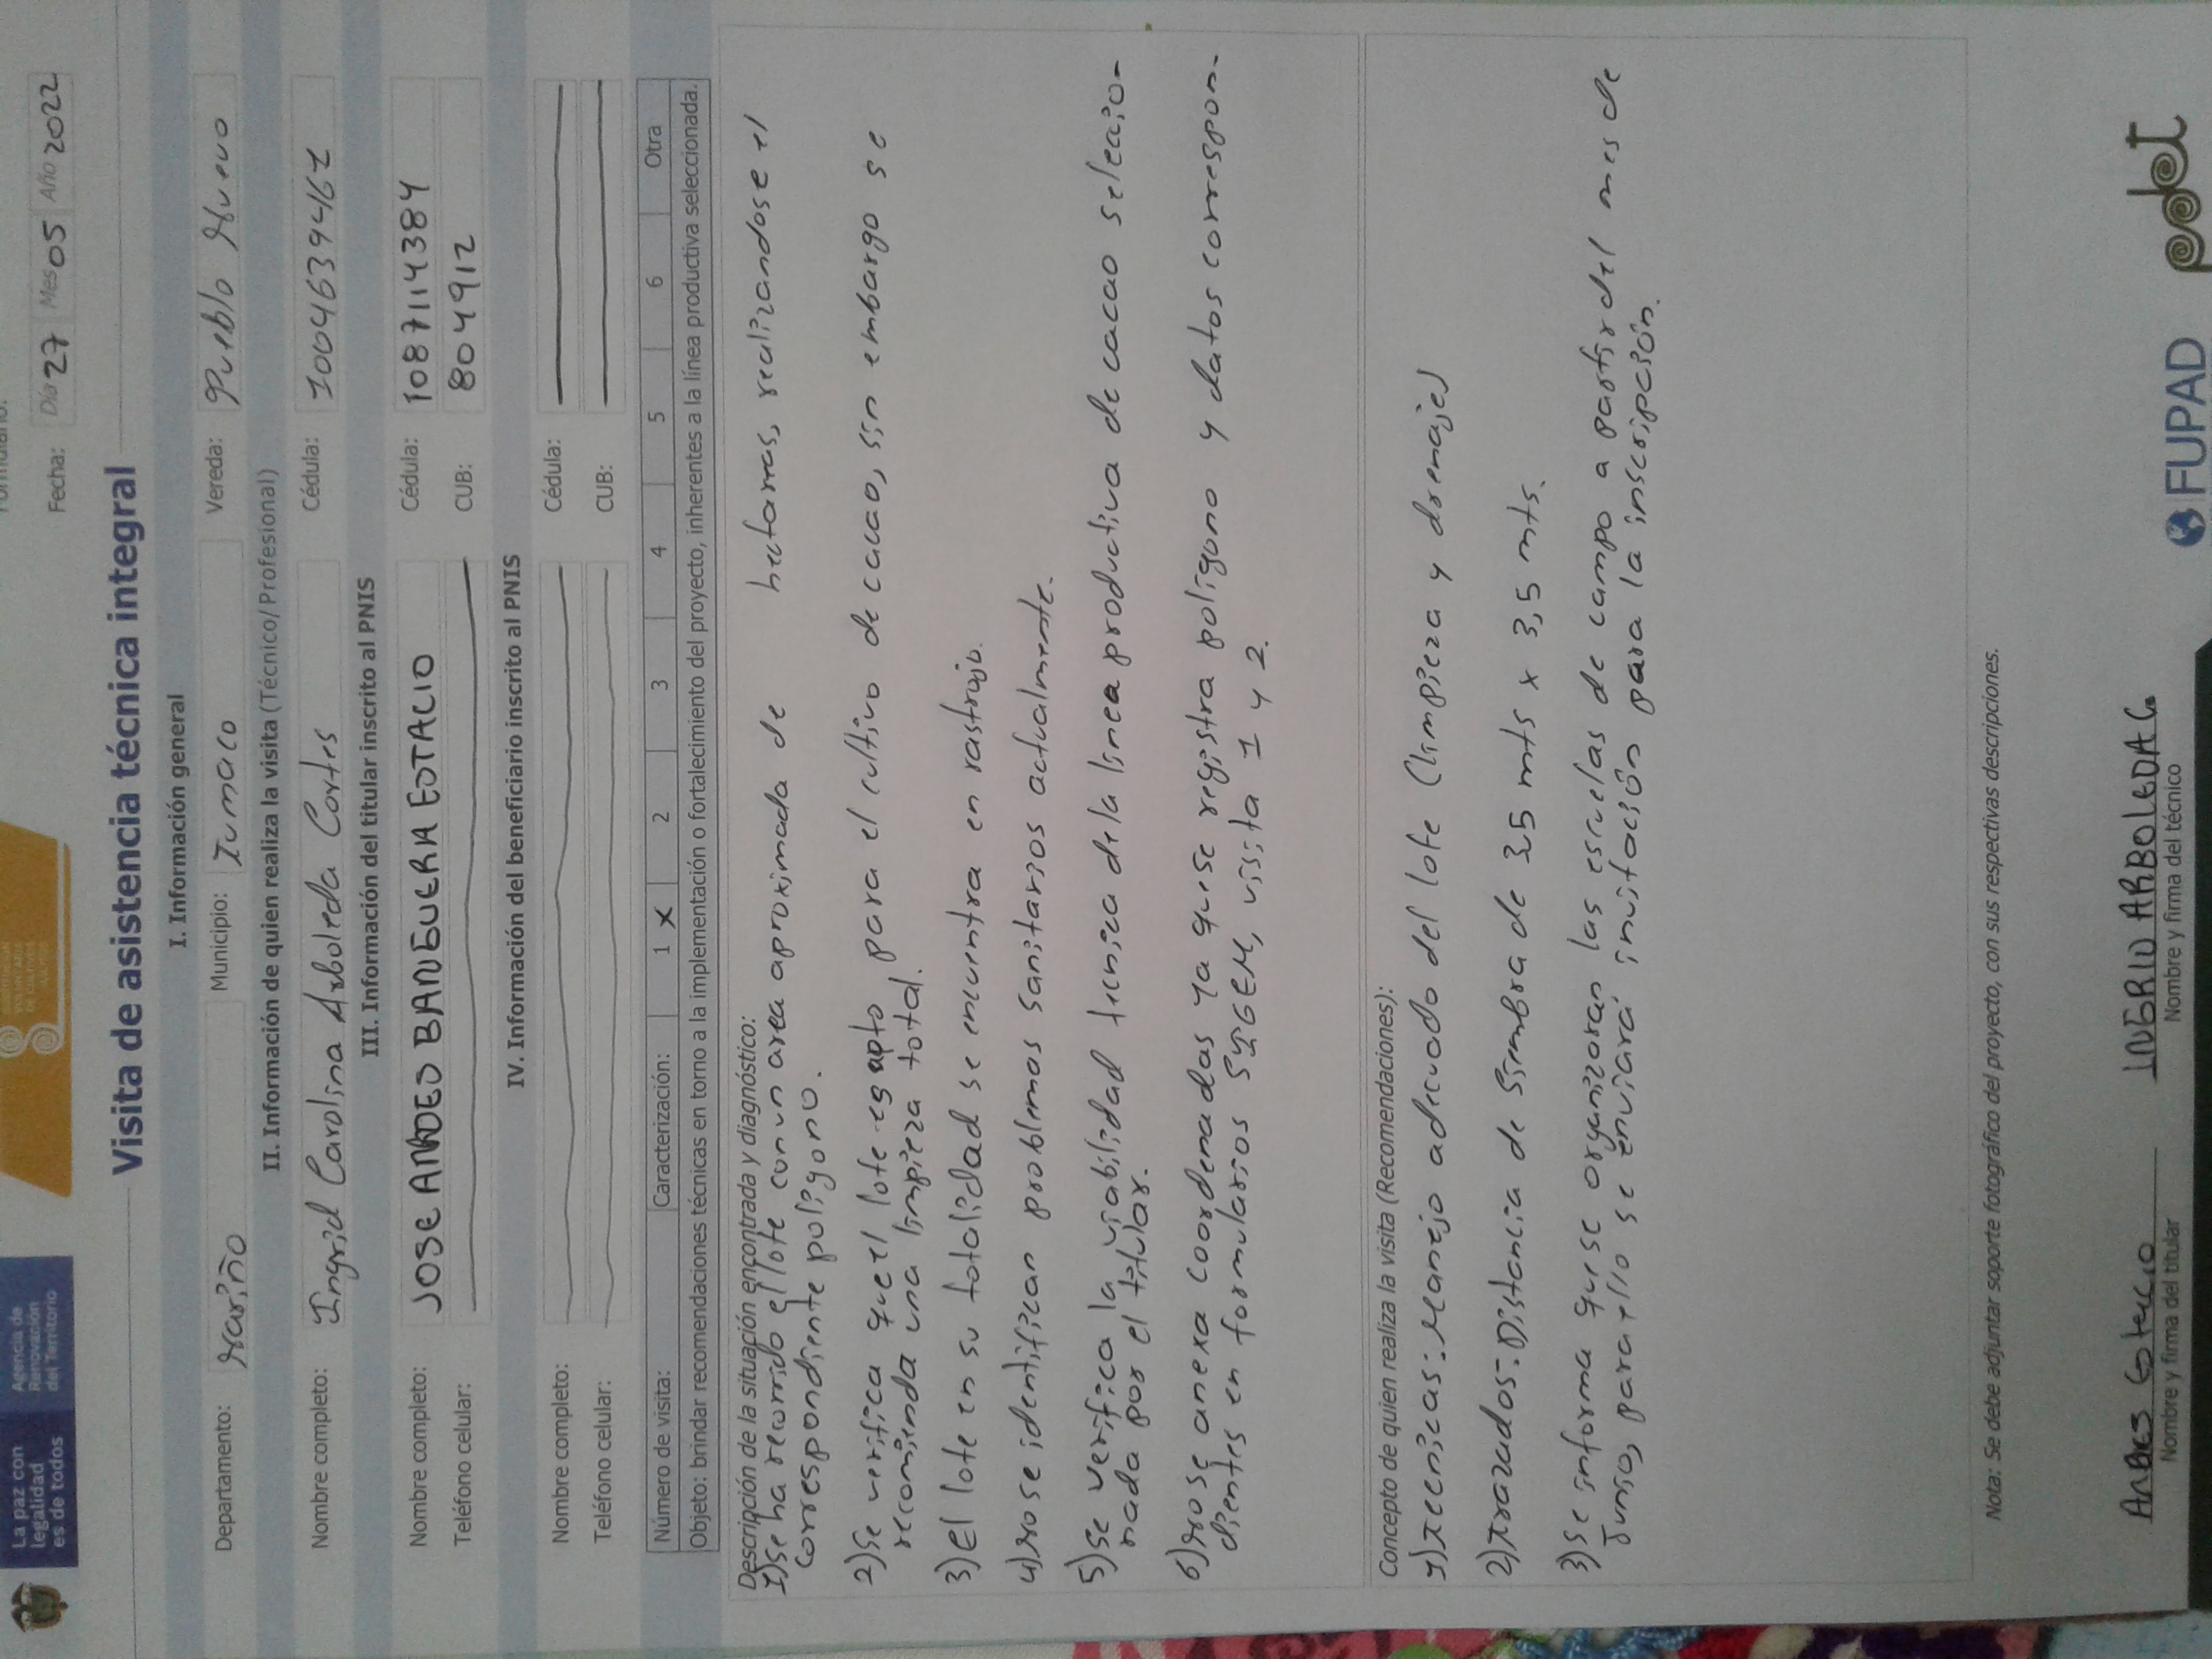 La paz con
legalidad
es de todos
Agencia de
Renovación
del Territorio
Fecha: Día 27 Mes 05 Año 2022
Visita de asistencia técnica integral
I. Información general
Departamento: Nariño Municipio: Tumaco Vereda: Pueblo Nuevo
II. Información de quien realiza la visita (Técnico/ Profesional)
Nombre completo: Ingrid Carolina Arboleda Cortes Cédula: 1004639467
III. Información del titular inscrito al PNIS
Nombre completo: JOSE ANDEO BANGUERA EOTACIO Cédula: 1087114384
Teléfono celular: CUB: 804912
IV. Información del beneficiario inscrito al PNIS
Nombre completo: Cédula:
Teléfono celular: CUB:
Número de visita: Caracterización: 1 X 2 3 4 5 6 Otra
Objeto: brindar recomendaciones técnicas en torno a la implementación o fortalecimiento del proyecto, inherentes a la línea productiva seleccionada.
Descripción de la situación encontrada y diagnóstico:
1) Se ha recorrido el lote con un area aproximada de hectarras, realizandose el
correspondiente poligono.
2) Se verifica que el lote es apto para el cultivo de cacao, sin embargo se
recomienda una limpieza total.
3) El lote en su totalidad se encuentra en rastrojo.
4) No se identifican problemas sanitarios actualmente.
5) Se verifica la viabilidad tecnica de la linea productiva de cacao seleccio-
nada por el titular.
6) No se anexa coordenadas ya que se registra poligono y datos correspon-
dientes en formularios SYGEM, visita 1 y 2.
Concepto de quien realiza la visita (Recomendaciones):
1) Tecnicas: Manejo adecuado del lote (limpieza y drenajes)
2) Trazados: Distancia de siembra de 3,5 mts x 3,5 mts.
3) Se informa que se organizaran las escuelas de campo a partir del mes de
Junio, para ello se enviará invitación para la inscripción.
Nota: Se debe adjuntar soporte fotográfico del proyecto, con sus respectivas descripciones.
ANDRES EOTACIO
Nombre y firma del titular
INGRID ARBOLEDA C.
Nombre y firma del técnico
FUPAD
pdet